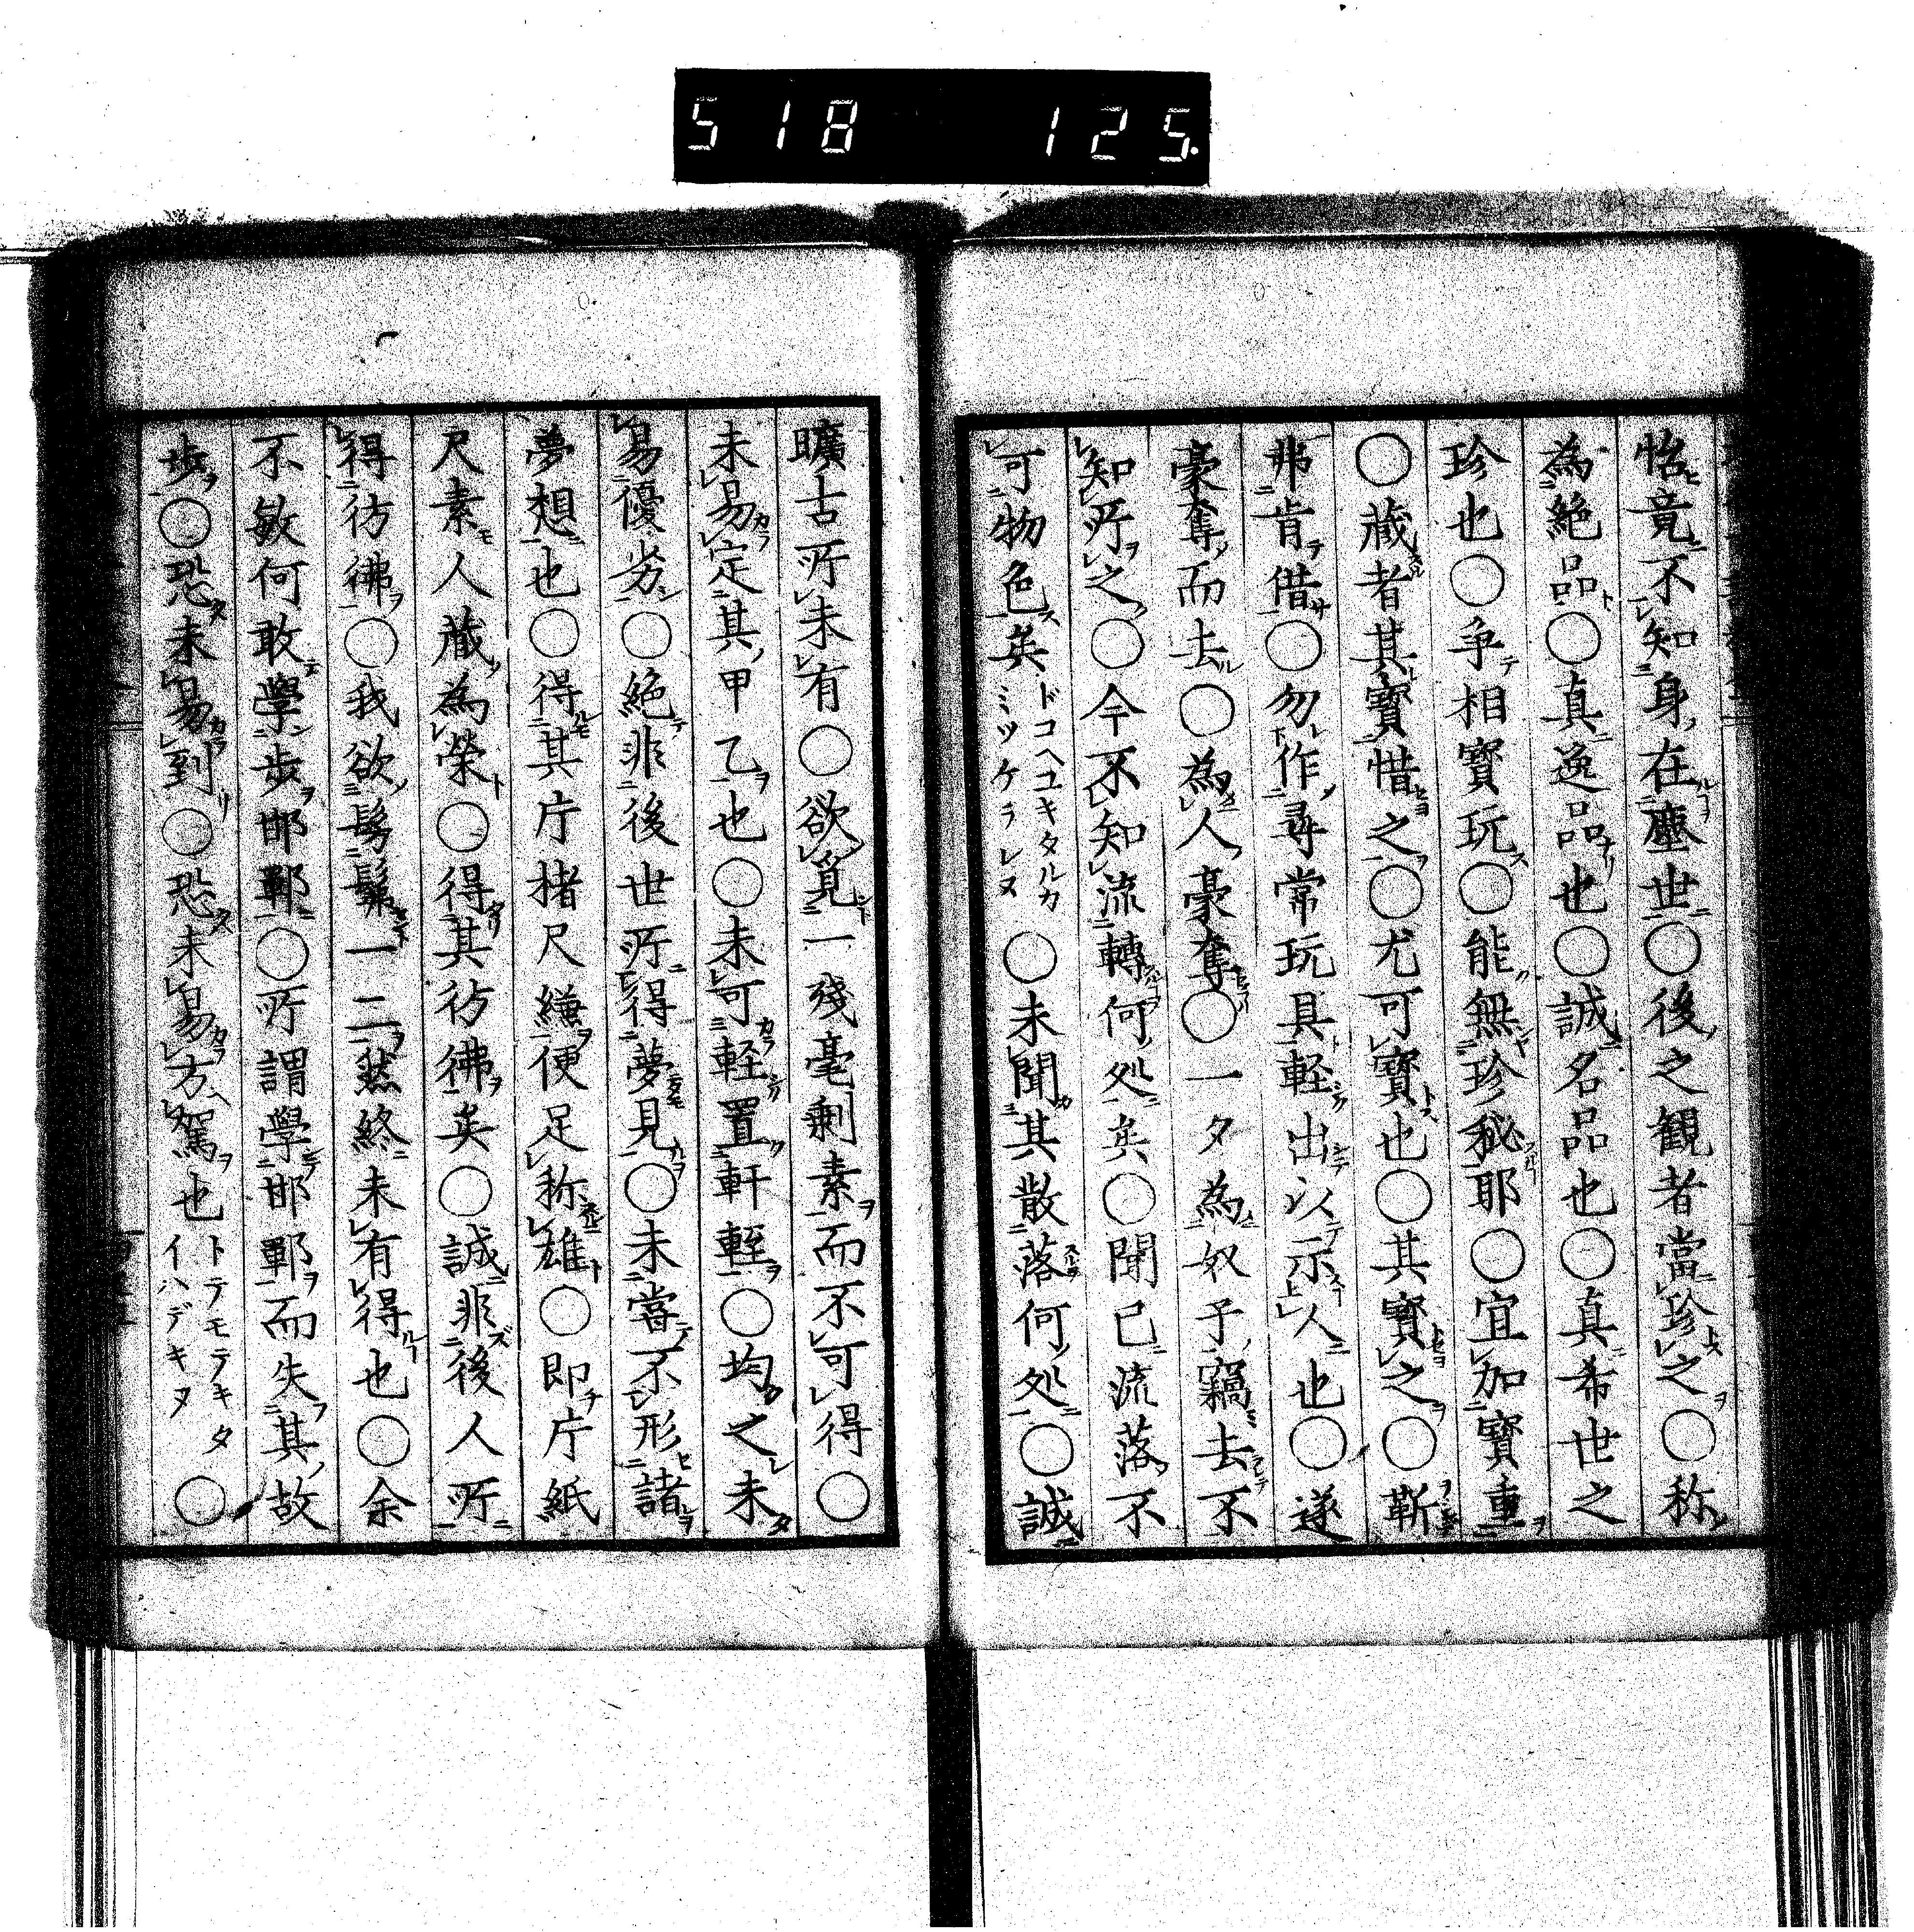 518 125.
怡竟不知身在塵世〇後之観者當珍之〇称
為絶品〇真逸品也〇誠名品也〇真希世之
珍也〇争相寳玩〇能無珍秘耶〇宜加寳重
〇蔵者其寳惜之〇尤可寳也〇其寳之〇靳
弗肯借〇勿作尋常玩具軽出以示人也〇遂
豪奪而去〇為人豪奪〇一夕為奴子竊去不
知所之〇今不知流轉何処矣〇聞已流落不
可物色矣ドコヘユキタルカミツケラレヌ〇未聞其散落何処〇誠
曠古所未有〇欲覓一殘毫剰素而不可得〇
未易定其甲乙也〇未可軽置軒輊〇均之未
易優劣〇絶非後世所得夢見〇未嘗不形諸
夢想也〇得其片楮尺縑便足称雄〇即片紙
尺素人蔵為榮〇得其彷彿矣〇誠非後人所
得彷彿〇我欲髣髴一二然終未有得也〇余
不敏何敢學歩邯鄲〇所謂學邯鄲而失其故
歩〇恐未易到〇恐未易方駕也トテモテキタイハデキヌ〇